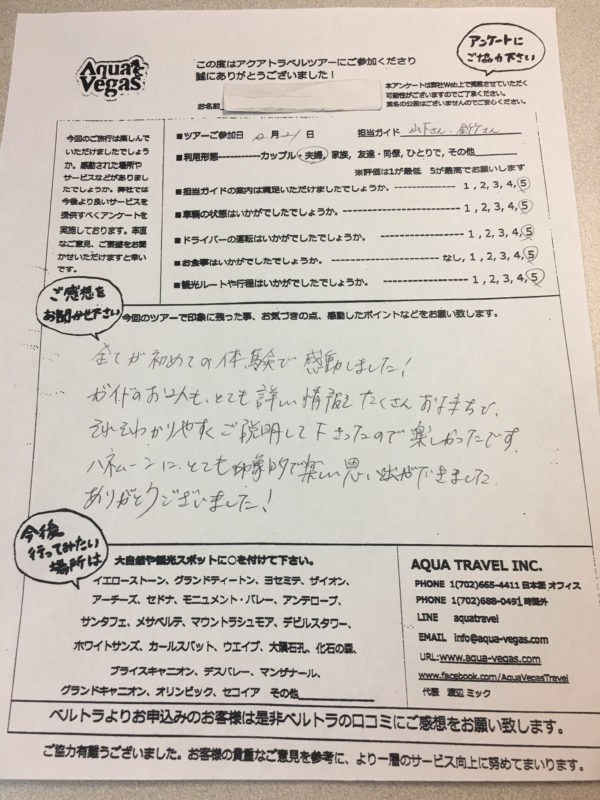 Aqua Vegas
この度はアクアトラベルツアーにご参加くださり
誠にありがとうございました！
アンケートに
ご協力下さい
お名前
本アンケートは弊社Web上で掲載させていただく
可能性がございますのでご了承ください。
実名の公表はございませんのでご安心ください。
今回のご旅行は楽しんで
いただけましたでしょう
か。感動された場所や
サービスなどがありまし
たでしょうか。弊社では
今後より良いサービスを
提供すべくアンケートを
実施しております。率直
なご意見、ご要望をお聞
かせいただけますと幸い
です。
■ツアーご参加日 月 21 日 担当ガイド 山下さん・
■利用形態-----------カップル・夫婦, 家族, 友達・同僚, ひとりで, その他
※評価は1が最低 5が最高でお願いします
■担当ガイドの案内は満足いただけましたでしょうか。 ---------------- 1, 2, 3, 4, 5
■車輌の状態はいかがでしたでしょうか。 ---------------- 1, 2, 3, 4, 5
■ドライバーの運転はいかがでしたでしょうか。 ---------------- 1, 2, 3, 4, 5
■お食事はいかがでしたでしょうか。 ---------------- なし, 1, 2, 3, 4, 5
■観光ルートや行程はいかがでしたでしょうか。 ---------------- 1, 2, 3, 4, 5
ご感想を
お聞かせ下さい
今回のツアーで印象に残った事、お気づきの点、感動したポイントなどをお願い致します。
全てが初めての体験で感動しました！
ガイドのお2人も、とても詳しい情報をたくさんお持ちで、
それをわかりやすくご説明して下さったので楽しかったです。
ハネムーンに、とても印象的で楽しい思い出ができました
ありがとうございました！
今後
行ってみたい
場所は
大自然や観光スポットに○を付けて下さい。
イエローストーン、グランドティートン、ヨセミテ、ザイオン、
アーチーズ、セドナ、モニュメント・バレー、アンテロープ、
サンタフェ、メサベルデ、マウントラシュモア、デビルスタワー、
ホワイトサンズ、カールスバット、ウエイブ、大隕石孔、化石の森、
ブライスキャニオン、デスバレー、マンザナール、
グランドキャニオン、オリンピック、セコイア その他
AQUA TRAVEL INC.
PHONE 1(702)665-4411 日本語 オフィス
PHONE 1(702)688-0491 時間外
LINE aquatravel
EMAIL info@aqua-vegas.com
URL:www.aqua-vegas.com
www.facebook.com/AquaVegasTravel
代表 渡辺 ミック
ベルトラよりお申込みのお客様は是非ベルトラの口コミにご感想をお願い致します。
ご協力有難うございました。お客様の貴重なご意見を参考に、より一層のサービス向上に努めてまいります。